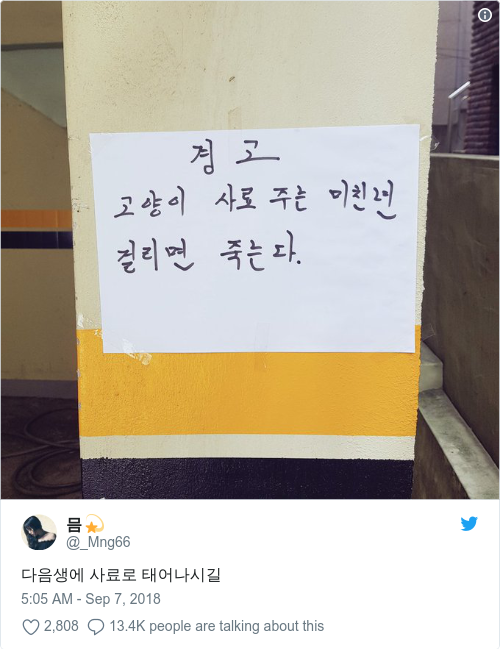 경고
고양이 사료 주는 미친년
걸리면 죽는다.
믐💫
@_Mng66
다음생에 사료로 태어나시길
5:05 AM - Sep 7, 2018
2,808 13.4K people are talking about this